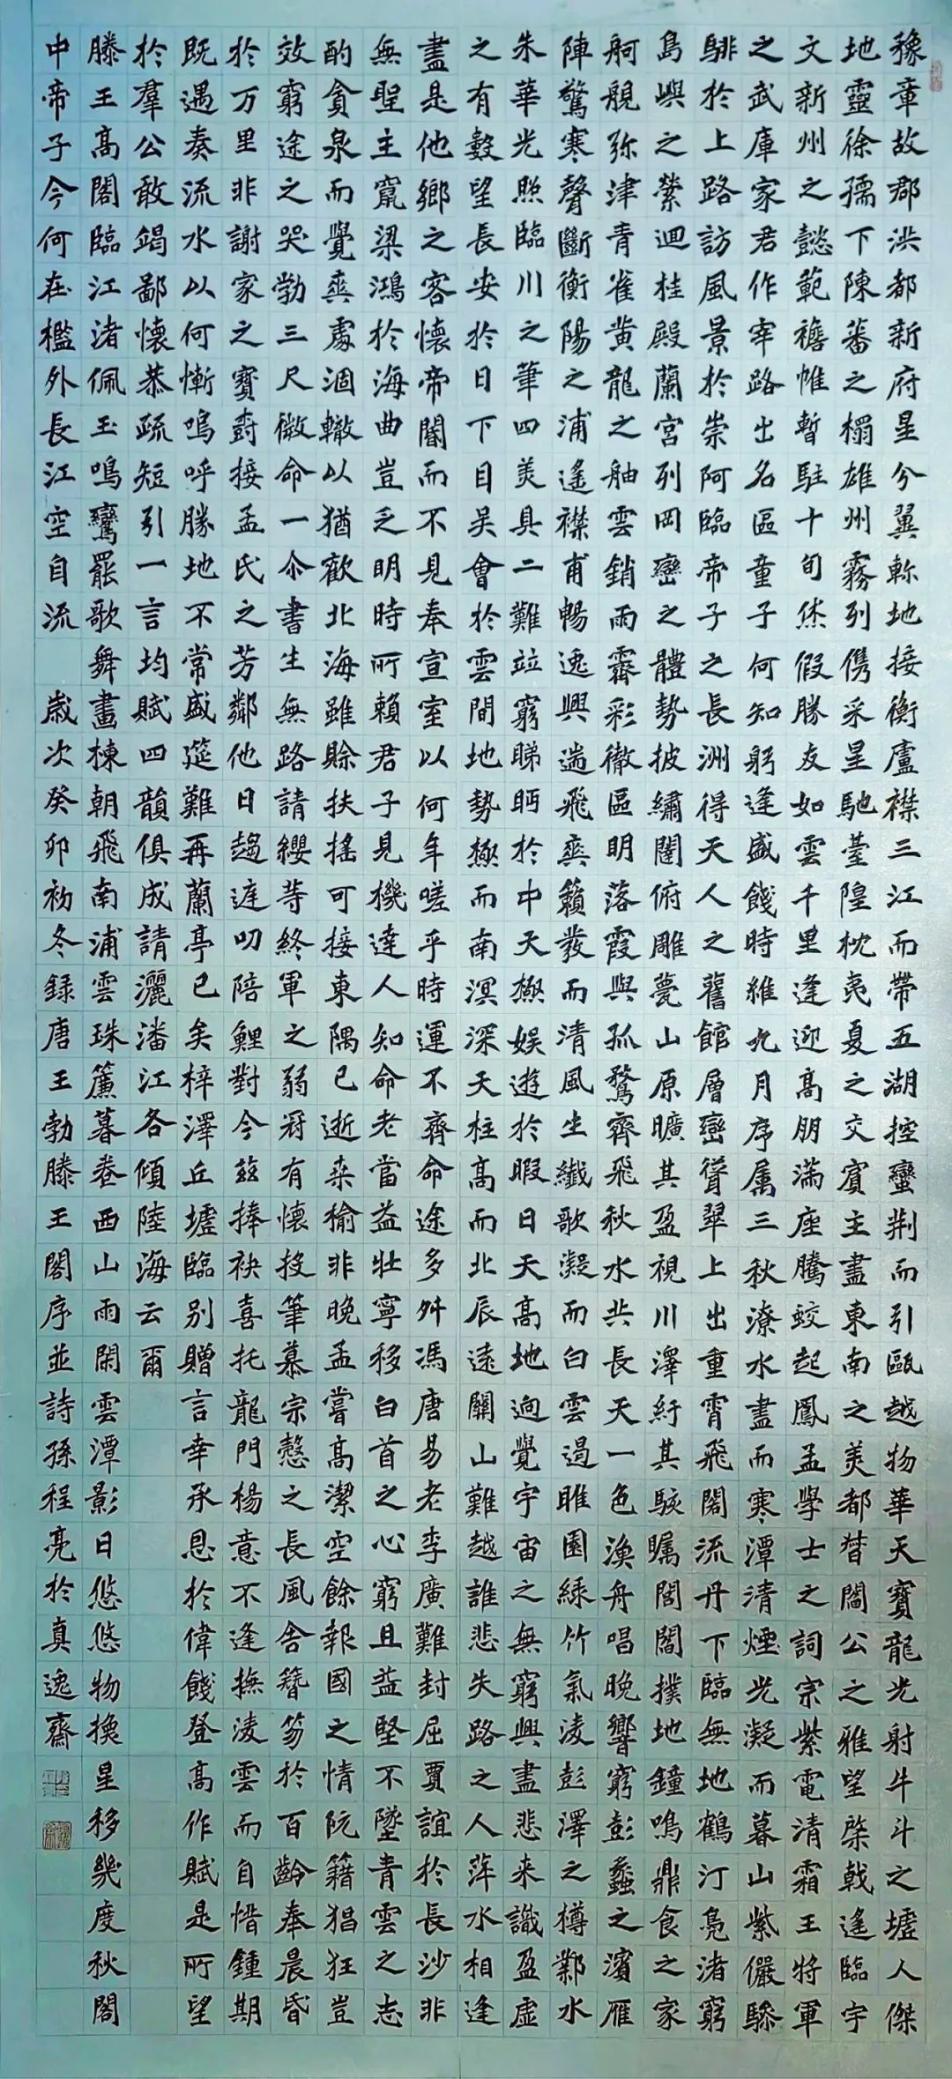 豫章故郡洪都新府星分翼軫地接衡廬襟三江而帶五湖控蠻荆而引甌越物華天寶龍光射牛斗之墟人傑
地靈徐孺下陳蕃之榻雄州霧列儁采星馳臺隍枕夷夏之交賓主盡東南之美都督閻公之雅望棨戟遙臨宇
文新州之懿範襜帷暫駐十旬休假勝友如雲千里逢迎高朋滿座騰蛟起鳳孟學士之詞宗紫電清霜王將軍
之武庫家君作宰路出名區童子何知躬逢盛餞時維九月序屬三秋潦水盡而寒潭清煙光凝而暮山紫儼驂
騑於上路訪風景於崇阿臨帝子之長洲得天人之舊館層巒聳翠上出重霄飛閣流丹下臨無地鶴汀鳧渚窮
島嶼之縈迴桂殿蘭宮列岡巒之體勢披繡闥俯雕甍山原曠其盈視川澤紆其駭矚閭閻撲地鐘鳴鼎食之家
舸艦弥津青雀黃龍之舳雲銷雨霽彩徹區明落霞與孤鶩齊飛秋水共長天一色漁舟唱晚響窮彭蠡之濱雁
陣驚寒聲斷衡陽之浦遙襟甫暢逸興遄飛爽籟發而清風生纖歌凝而白雲遏睢園綠竹氣凌彭澤之樽鄴水
朱華光照臨川之筆四美具二難竝窮睇眄於中天極娛遊於暇日天高地迥覺宇宙之無窮興盡悲来識盈虛
之有數望長安於日下目吳會於雲間地勢極而南溟深天柱高而北辰遠關山難越誰悲失路之人萍水相逢
盡是他鄉之客懷帝閽而不見奉宣室以何年嗟乎時運不齊命途多舛馮唐易老李廣難封屈賈誼於長沙非
無聖主竄梁鴻於海曲豈乏明時所賴君子見機達人知命老當益壯寧移白首之心窮且益堅不墜青雲之志
酌貪泉而覺爽處涸轍以猶歡北海雖賒扶搖可接東隅已逝桒榆非晚孟嘗高潔空餘報國之情阮籍猖狂豈
效窮途之哭勃三尺微命一介書生無路請纓等終軍之弱冠有懷投筆慕宗慤之長風舍簪笏於百齡奉晨昏
於万里非謝家之寶樹接孟氏之芳鄰他日趨庭叨陪鯉對今茲捧袂喜托龍門楊意不逢撫淩雲而自惜鍾期
既遇奏流水以何慚嗚呼勝地不常盛筵難再蘭亭已矣梓澤丘墟臨別贈言幸承恩於偉餞登高作賦是所望
於羣公敢竭鄙懷恭疏短引一言均賦四韻俱成請灑潘江各傾陸海云爾
滕王高閣臨江渚佩玉鳴鸞罷歌舞畫棟朝飛南浦雲珠簾暮卷西山雨閑雲潭影日悠悠物換星移幾度秋閣
中帝子今何在檻外長江空自流 歲次癸卯初冬録唐王勃滕王閣序並詩孫程亮於真逸齋